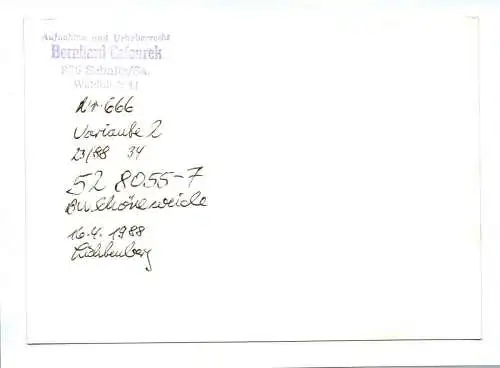 Aufnahme und Urheberrecht
Bernhard Cafourek
Nr. 666
Variante 2
23/88 34
52 8055-7
BW Schöneweide
16.4.1988
Lichtenberg